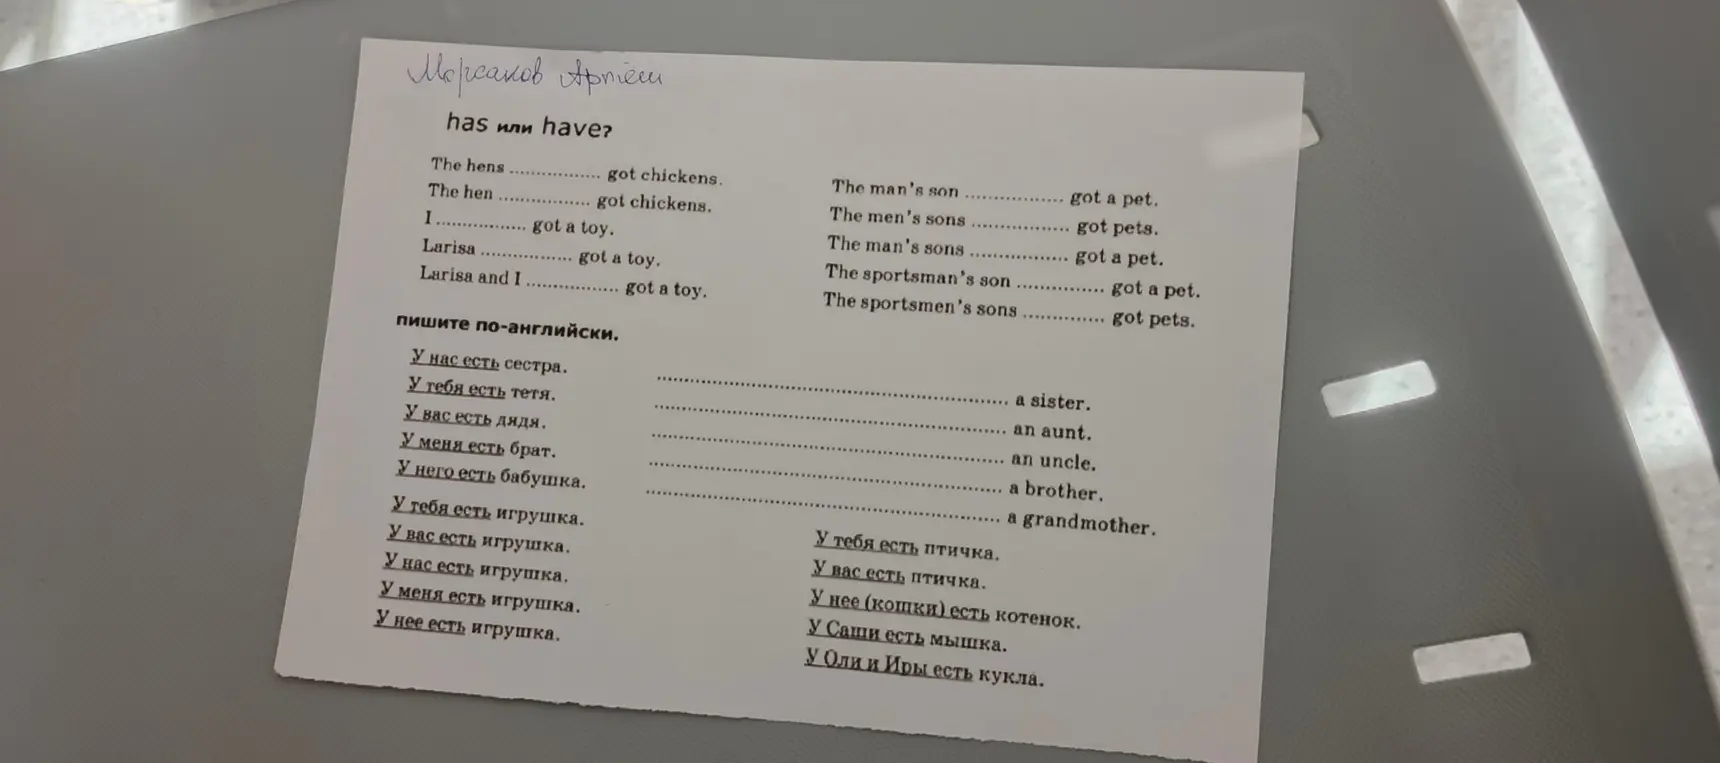 Морсаков Артём
has или have?
The hens ................. got chickens.
The hen ................. got chickens.
I ................. got a toy.
Larisa ................. got a toy.
Larisa and I ................. got a toy.
The man's son .................. got a pet.
The men's sons .................. got pets.
The man's sons .................. got a pet.
The sportsman's son ................ got a pet.
The sportsmen's sons ............... got pets.
пишите по-английски.
У нас есть сестра. .................................................................. a sister.
У тебя есть тетя. .................................................................. an aunt.
У вас есть дядя. .................................................................. an uncle.
У меня есть брат. .................................................................. a brother.
У него есть бабушка. .................................................................. a grandmother.
У тебя есть игрушка.
У вас есть игрушка.
У нас есть игрушка.
У меня есть игрушка.
У нее есть игрушка.
У тебя есть птичка.
У вас есть птичка.
У нее (кошки) есть котенок.
У Саши есть мышка.
У Оли и Иры есть кукла.